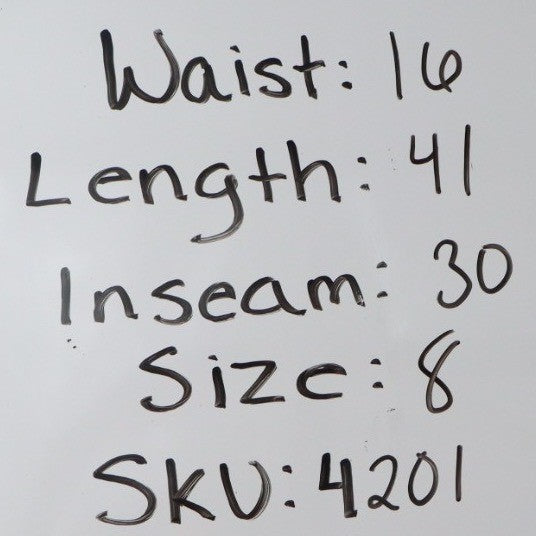 Waist: 16
Length: 41
Inseam: 30
Size: 8
SKU: 4201